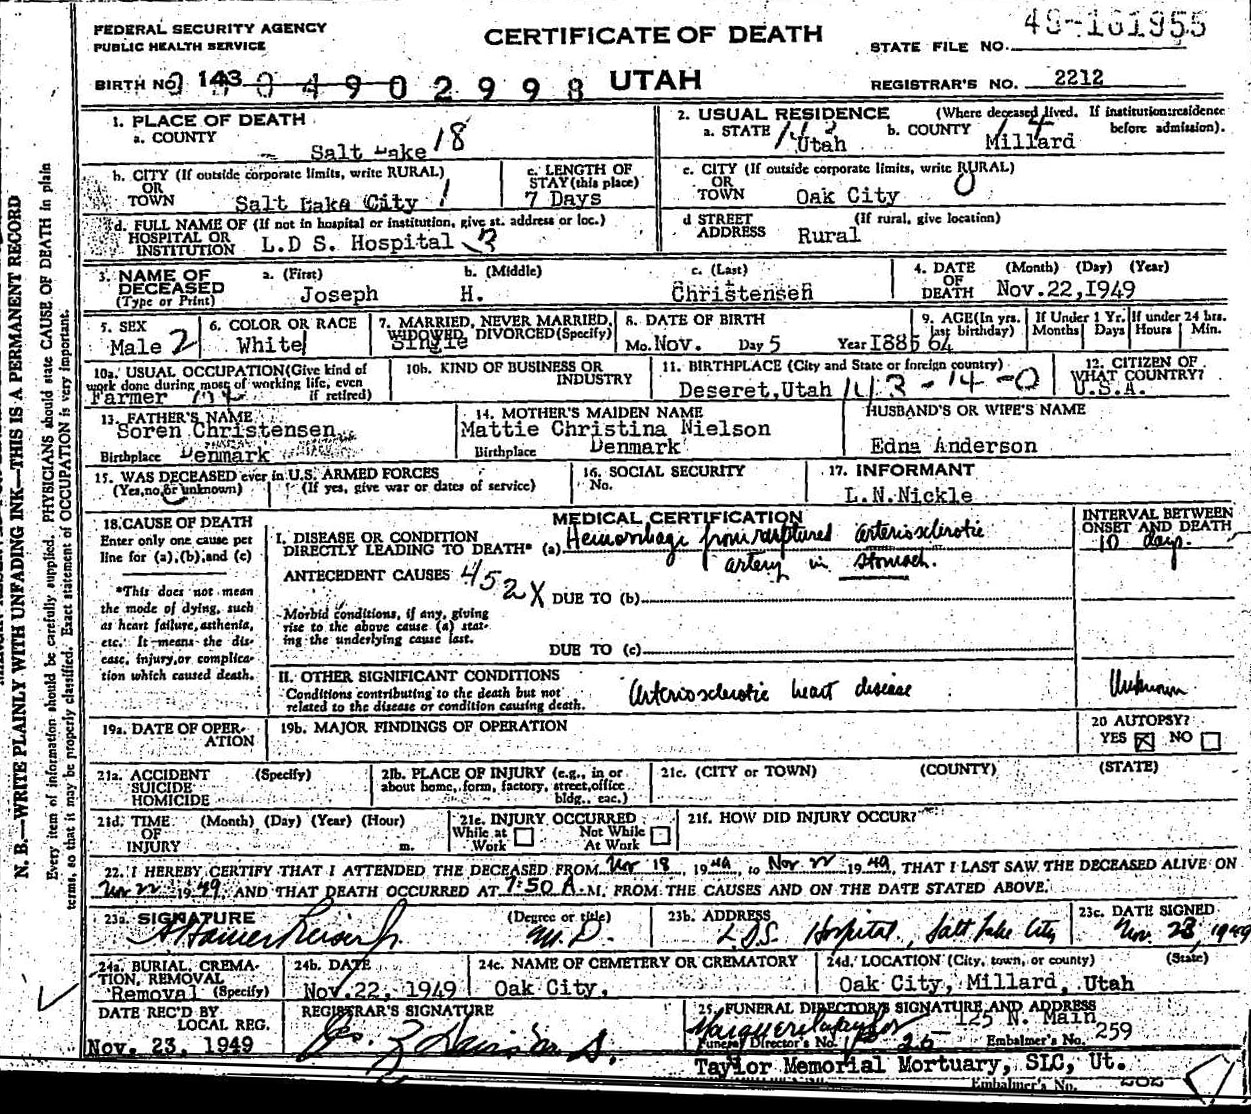 FEDERAL SECURITY AGENCY
PUBLIC HEALTH SERVICE
CERTIFICATE OF DEATH
UTAH
49-161955
STATE FILE NO.
BIRTH NO. 143 0 4 9 0 2 9 9 8
REGISTRAR'S NO. 2212
N. B.—WRITE PLAINLY WITH UNFADING INK—THIS IS A PERMANENT RECORD
Every item of information should be carefully supplied. PHYSICIANS should state CAUSE OF DEATH in plain
terms, so that it may be properly classified. Exact statement of OCCUPATION is very important.
1. PLACE OF DEATH
a. COUNTY
Salt Lake 18
2. USUAL RESIDENCE (Where deceased lived. If institution:residence before admission).
a. STATE Utah b. COUNTY Millard
b. CITY (If outside corporate limits, write RURAL)
OR
TOWN Salt Lake City 1
c. LENGTH OF
STAY (this place)
7 Days
c. CITY (If outside corporate limits, write RURAL)
OR
TOWN Oak City 0
d. FULL NAME OF (If not in hospital or institution, give st. address or loc.)
HOSPITAL OR
INSTITUTION L.D S. Hospital
d STREET (If rural, give location)
ADDRESS Rural
3. NAME OF
DECEASED
(Type or Print)
a. (First) b. (Middle) c. (Last)
Joseph H. Christensen
4. DATE (Month) (Day) (Year)
OF
DEATH Nov.22,1949
5. SEX
Male 2
6. COLOR OR RACE
White
7. MARRIED, NEVER MARRIED,
WIDOWED, DIVORCED(Specify)
Single
8. DATE OF BIRTH
Mo. Nov. Day 5 Year 1885
9. AGE(In yrs.
last birthday)
64
If Under 1 Yr.
Months Days
If under 24 hrs.
Hours Min.
10a. USUAL OCCUPATION(Give kind of
work done during most of working life, even
if retired)
Farmer
10b. KIND OF BUSINESS OR
INDUSTRY
11. BIRTHPLACE (City and State or foreign country)
Deseret,Utah 143-14-0
12. CITIZEN OF
WHAT COUNTRY?
U.S.A.
13. FATHER'S NAME
Soren Christensen
Birthplace Denmark
14. MOTHER'S MAIDEN NAME
Mattie Christina Nielson
Birthplace Denmark
HUSBAND'S OR WIFE'S NAME
Edna Anderson
15. WAS DECEASED ever in U.S. ARMED FORCES
(Yes,no,or unknown) (If yes, give war or dates of service)
16. SOCIAL SECURITY
No.
17. INFORMANT
L.N.Nickle
18. CAUSE OF DEATH
Enter only one cause per
line for (a),(b),and (c)
*This does not mean
the mode of dying, such
as heart failure, asthenia,
etc. It means the dis-
ease, injury,or complica-
tion which caused death.
MEDICAL CERTIFICATION
INTERVAL BETWEEN
ONSET AND DEATH
I. DISEASE OR CONDITION
DIRECTLY LEADING TO DEATH* (a) Hemorrhage from ruptured arteriosclerotic
artery in stomach.
10 days.
ANTECEDENT CAUSES 452X
DUE TO (b)
Morbid conditions, if any, giving
rise to the above cause (a) stat-
ing the underlying cause last.
DUE TO (c)
II. OTHER SIGNIFICANT CONDITIONS
Conditions contributing to the death but not
related to the disease or condition causing death.
Arteriosclerotic heart disease
Unknown
19a. DATE OF OPER-
ATION
19b. MAJOR FINDINGS OF OPERATION
20 AUTOPSY?
YES NO
21a. ACCIDENT (Specify)
SUICIDE
HOMICIDE
21b. PLACE OF INJURY (e.g., in or
about home, form, factory, street,office
bldg., eac.)
21c. (CITY or TOWN) (COUNTY) (STATE)
21d. TIME (Month) (Day) (Year) (Hour)
OF
INJURY m.
21e. INJURY OCCURRED
While at Work Not While At Work
21f. HOW DID INJURY OCCUR?
22. I HEREBY CERTIFY THAT I ATTENDED THE DECEASED FROM Nov 18, 1949, to Nov 22 1949, THAT I LAST SAW THE DECEASED ALIVE ON
Nov 22 1949, AND THAT DEATH OCCURRED AT 7:50 A.M. FROM THE CAUSES AND ON THE DATE STATED ABOVE.
23a. SIGNATURE (Degree or title)
M.D.
23b. ADDRESS
LDS Hospital, Salt Lake City
23c. DATE SIGNED
Nov. 23, 1949
24a. BURIAL, CREMA-
TION, REMOVAL
Removal (Specify)
24b. DATE
Nov.22, 1949
24c. NAME OF CEMETERY OR CREMATORY
Oak City,
24d. LOCATION (City, town, or county) (State)
Oak City, Millard, Utah
DATE REC'D BY
LOCAL REG.
Nov. 23, 1949
REGISTRAR'S SIGNATURE
25. FUNERAL DIRECTOR'S SIGNATURE AND ADDRESS
125 N. Main
Funeral Director's No. Embalmer's No. 259
Taylor Memorial Mortuary, SLC, Ut.
Embalmer's No.